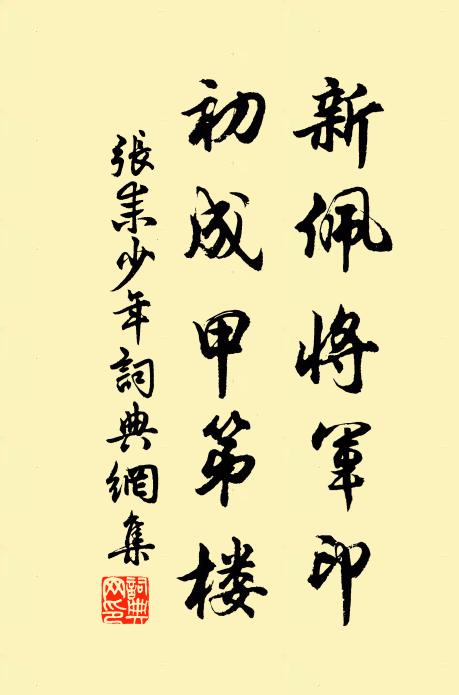 新佩將軍印
初成甲第楼
張耒少年詞典網集
詞典網印